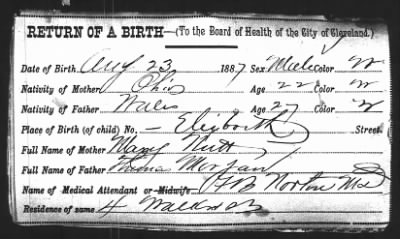 RETURN OF A BIRTH—(To the Board of Health of the City of Cleveland.)
Date of Birth Aug 23 1887 Sex Male Color W
Nativity of Mother Ohio Age 22 Color W
Nativity of Father Wales Age 27 Color W
Place of Birth (of child) No. — Street.
Full Name of Mother Mary
Full Name of Father Thomas Morgan
Name of Medical Attendant or Midwife HB Norton Md
Residence of same 4